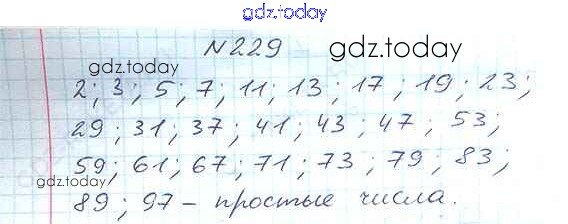 gdz.today
№229
gdz.today
gdz.today
2; 3; 5; 7; 11; 13; 17; 19; 23;
29; 31; 37; 41; 43; 47; 53;
59; 61; 67; 71; 73; 79; 83;
gdz.today
89; 97 - простые числа.